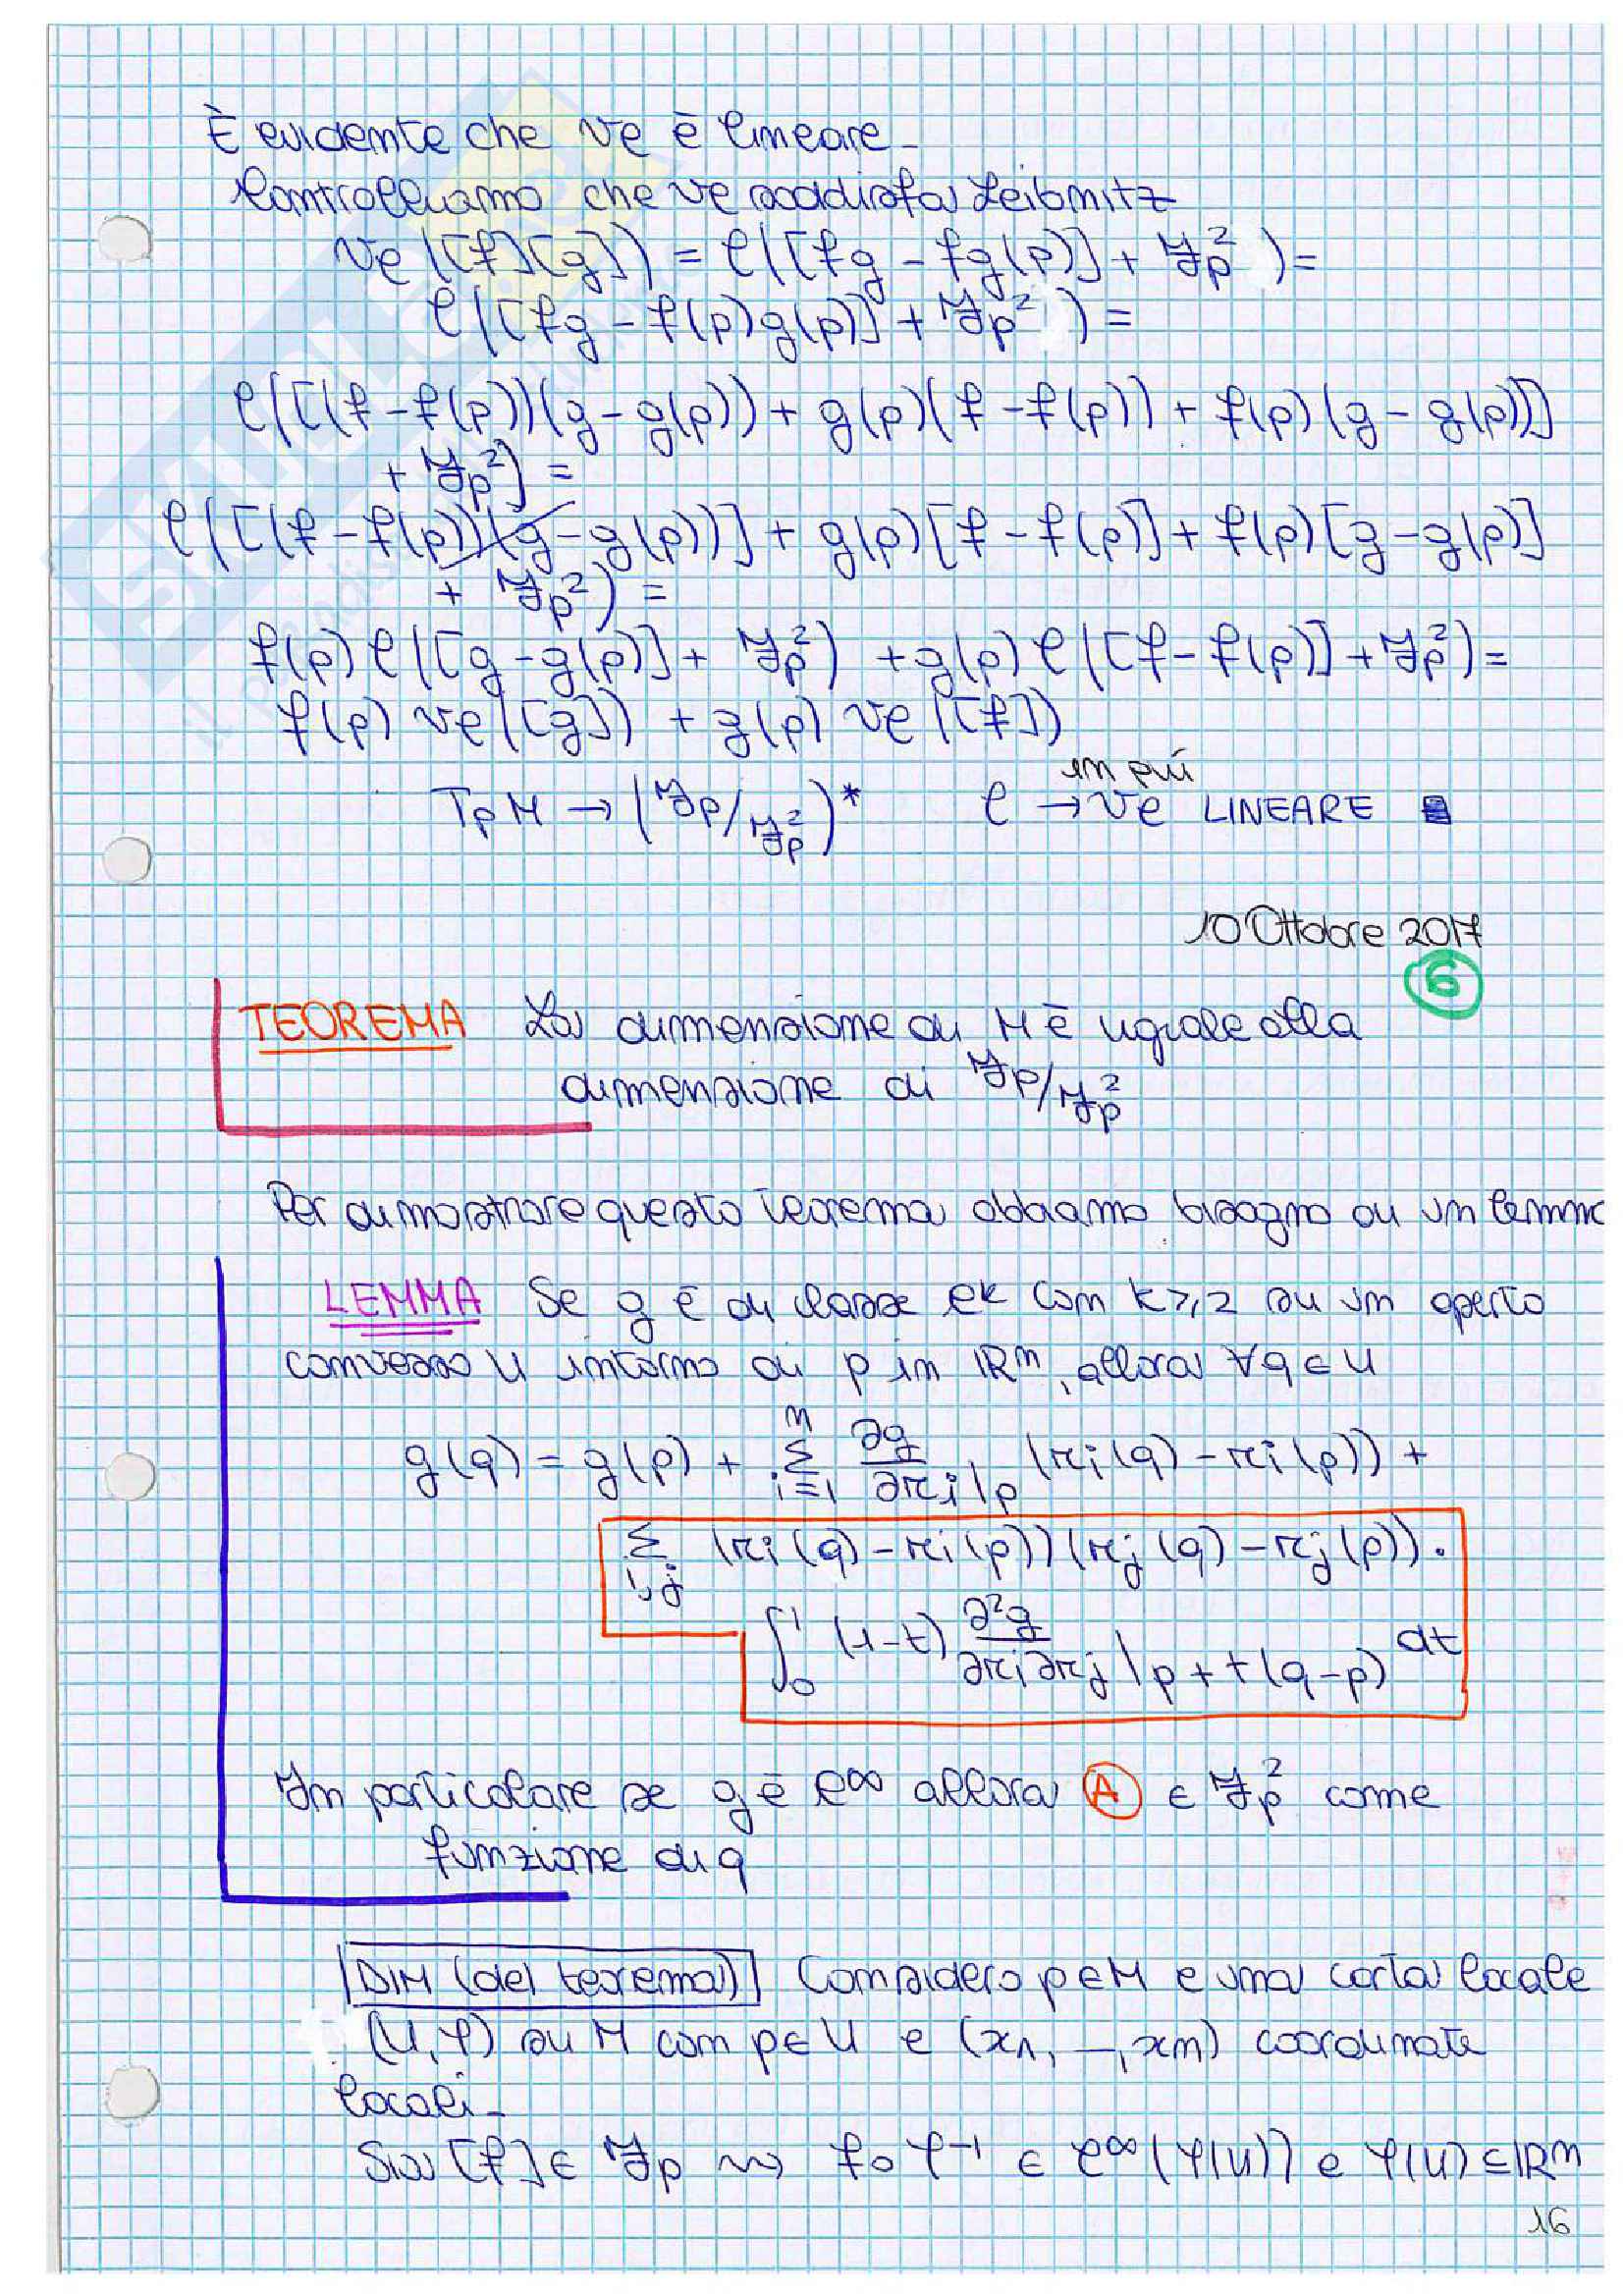 È evidente che vℓ è lineare_
Controlliamo che vℓ soddisfa Leibnitz
vℓ([f][g]) = ℓ([fg - fg(p)] + ℱp²) =
ℓ([fg - f(p)g(p)] + ℱp²) =
ℓ([(f - f(p))(g - g(p)) + g(p)(f - f(p)) + f(p)(g - g(p))]
+ ℱp²) =
ℓ([(f - f(p))(g - g(p))] + g(p)[f - f(p)] + f(p)[g - g(p)]
+ ℱp²) =
f(p) ℓ([g - g(p)] + ℱp²) + g(p) ℓ([f - f(p)] + ℱp²) =
f(p) vℓ([g]) + g(p) vℓ([f])
in più
TpM → (ℱp/ℱp²)* ℓ → vℓ LINEARE
10 Ottobre 2017
6
TEOREMA La dimensione di M è uguale alla
dimensione di ℱp/ℱp²
Per dimostrare questo teorema abbiamo bisogno di un lemma
LEMMA Se g è di classe Ck con k ≥ 2 su un aperto
convesso U intorno di p in ℝn, allora ∀q ∈ U
g(q) = g(p) + Σ_{i=1}^{n} ∂g/∂ri|p (ri(q) - ri(p)) +
Σ_{i,j} (ri(q) - ri(p))(rj(q) - rj(p)) ·
∫₀¹ (1-t) ∂²g/∂ri∂rj|p + t(q-p) dt
In particolare se g è C∞ allora A ∈ ℱp² come
funzione di q
DIM (del teorema) Considero p ∈ M e una carta locale
(U, φ) su M con p ∈ U e (x1, _, xn) coordinate
locali_
Sia [f] ∈ ℱp ⇝ f∘φ⁻¹ ∈ C∞(φ(U)) e φ(U) ⊆ ℝn
16